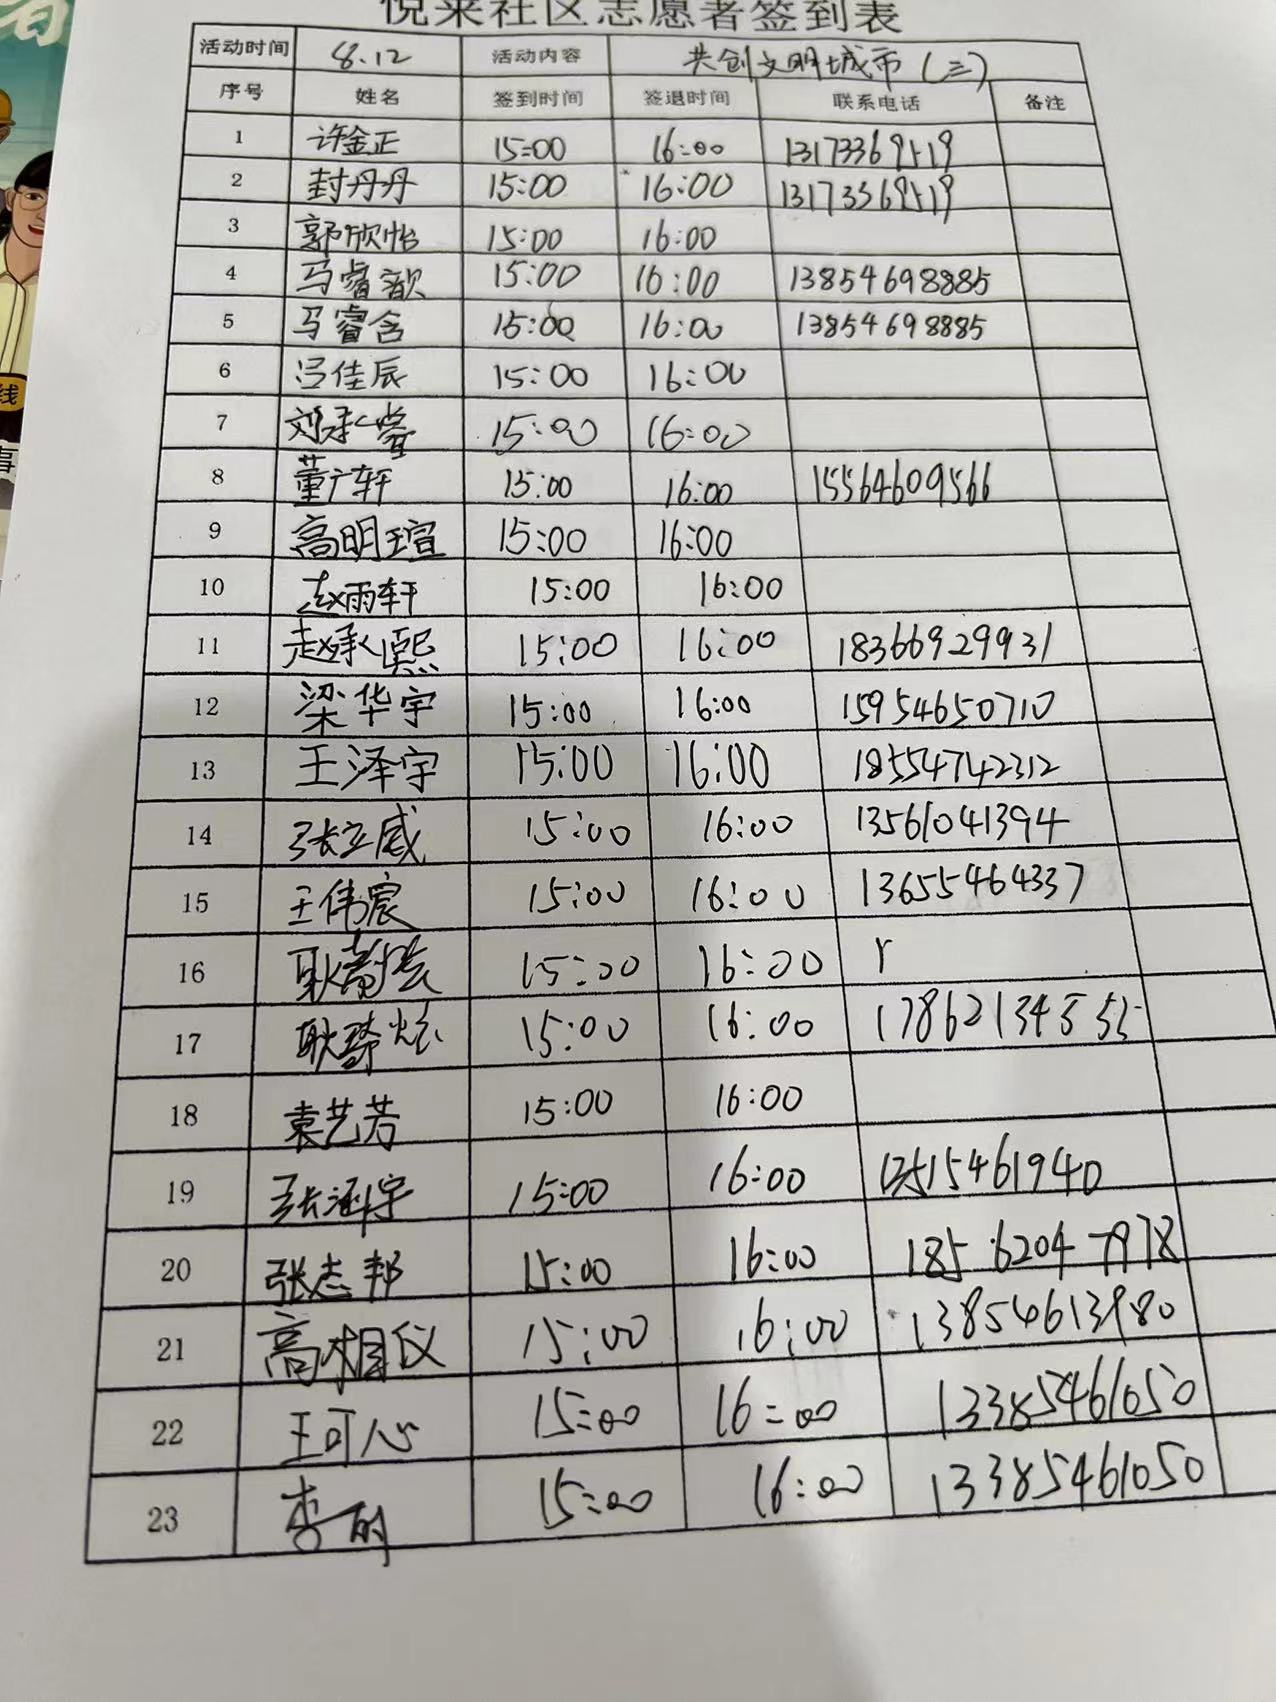 者
线
事
悦来社区志愿者签到表
活动时间 8.12 活动内容 共创文明城市(三)
序号 姓名 签到时间 签退时间 联系电话 备注
1 许金正 15:00 16:00 13173369519
2 封丹丹 15:00 16:00 13173369519
3 郭欣怡 15:00 16:00
4 马睿歆 15:00 16:00 13854698885
5 马睿含 15:00 16:00 13854698885
6 冯佳辰 15:00 16:00
7 刘承 15:00 16:00
8 董广轩 15:00 16:00 15564609566
9 高明瑄 15:00 16:00
10 赵雨轩 15:00 16:00
11 赵承熙 15:00 16:00 18366929931
12 梁华宇 15:00 16:00 15954650710
13 王泽宇 15:00 16:00 18554742312
14 张立威 15:00 16:00 13561041394
15 王伟宸 15:00 16:00 13655464337
16 耿 15:00 16:00
17 耿 15:00 16:00 17862134555
18 袁艺芳 15:00 16:00
19 张涵宇 15:00 16:00 15461940
20 张志邦 15:00 16:00 185 6204 7978
21 高相仪 15:00 16:00 13854613980
22 王可心 15:00 16:00 13385461050
23 李 15:00 16:00 13385461050